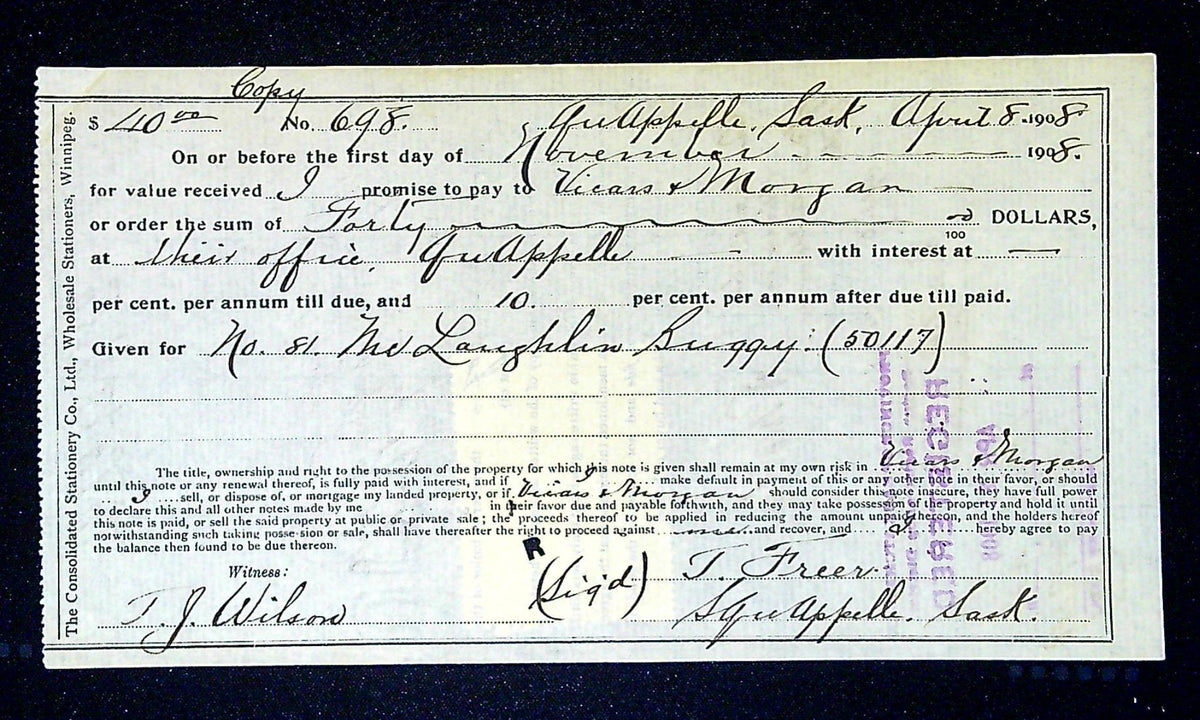 Copy
$ 40 00 No. 698. Qu'Appelle, Sask, April 8. 1908
On or before the first day of November 1908.
for value received I promise to pay to Vicars & Morgan
or order the sum of Forty 00/100 DOLLARS,
at their office, Qu'Appelle with interest at —
per cent. per annum till due, and 10. per cent. per annum after due till paid.
Given for No. 81. McLaughlin Buggy. (50117)
The title, ownership and right to the possession of the property for which this note is given shall remain at my own risk in Vicars & Morgan
until this note or any renewal thereof, is fully paid with interest, and if I make default in payment of this or any other note in their favor, or should
I sell, or dispose of, or mortgage my landed property, or if Vicars & Morgan should consider this note insecure, they have full power
to declare this and all other notes made by me in their favor due and payable forthwith, and they may take possession of the property and hold it until
this note is paid, or sell the said property at public or private sale; the proceeds thereof to be applied in reducing the amount unpaid thereon, and the holders hereof
notwithstanding such taking possession or sale, shall have thereafter the right to proceed against me and recover, and I hereby agree to pay
the balance then found to be due thereon.
R
Witness: (Sig'd) T. Freer.
T. J. Wilson SQu'Appelle, Sask.
The Consolidated Stationery Co., Ltd., Wholesale Stationers, Winnipeg.
RECEIVED